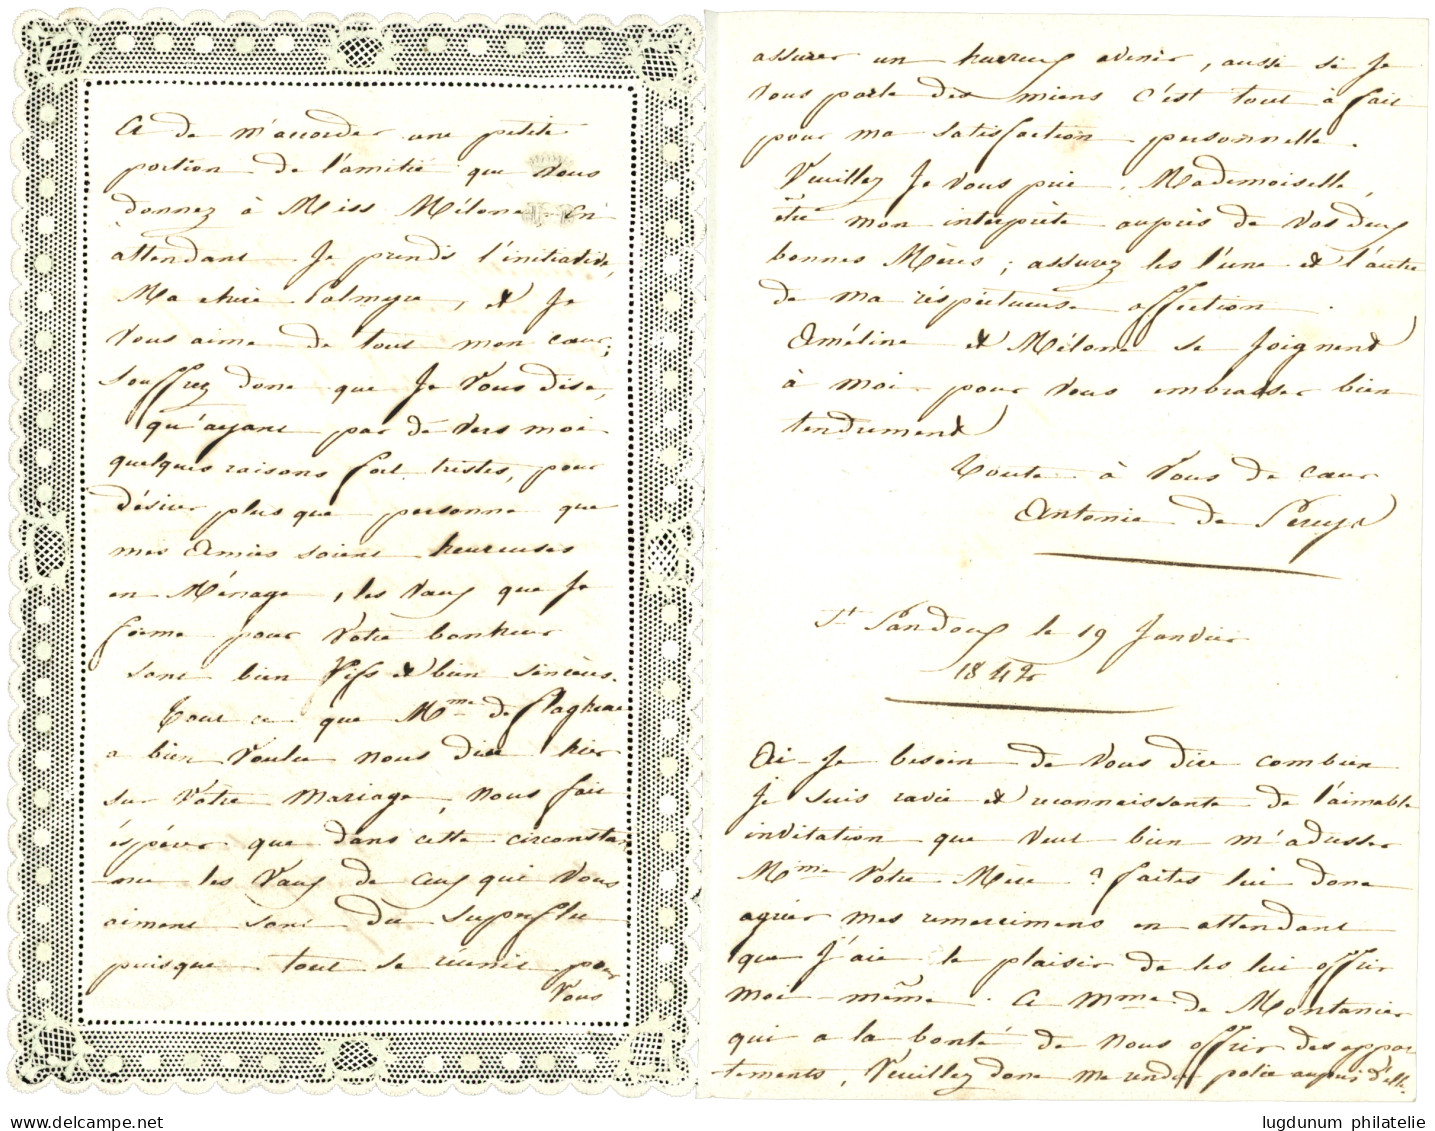 a de m'accorder une petite
portion de l'amitié que vous
donnez à Miss Mélone. En
attendant je prends l'initiative,
Ma chère Palmyre, et je
vous aime de tout mon cœur;
souffrez donc que je vous dise,
qu'ayant par de vers moi
quelques raisons fort tristes, pour
désirer plus que personne que
mes Amies soient heureuses
en Ménage, les vœux que je
forme pour votre bonheur
sont bien vifs et bien sincères.
Tout ce que Mme de
a bien voulu nous dire hier
sur votre mariage, nous fait
éspérer que dans cette circonstan
les vœux de ceux qui vous
aiment sont du superflu
puisque tout se réunit pour
vous
assurer un heureux avenir, aussi si je
vous parle des miens c'est tout à fait
pour ma satisfaction personnelle.
Veuillez je vous prie, Mademoiselle,
être mon interprète auprès de vos deux
bonnes Mères; assurez les l'une et l'autre
de ma réspectueuse affection.
Améline et Mélone se joignent
à moi pour vous embrasser bien
tendrement
Toute à vous de cœur
Antonie de
St Pandoux le 19 Janvier
1842
Ai-je besoin de vous dire combien
je suis ravie et reconnaissante de l'aimable
invitation que veut bien m'adresser
Mme votre Mère? faites lui donc
agréer mes remercimens en attendant
que j'aie le plaisir de les lui offrir
moi-même. A Mme de Montanier
qui a la bonté de nous offrir des appar
tements, veuillez donc me rendre polie auprès d'elle
lugdunum philatelie